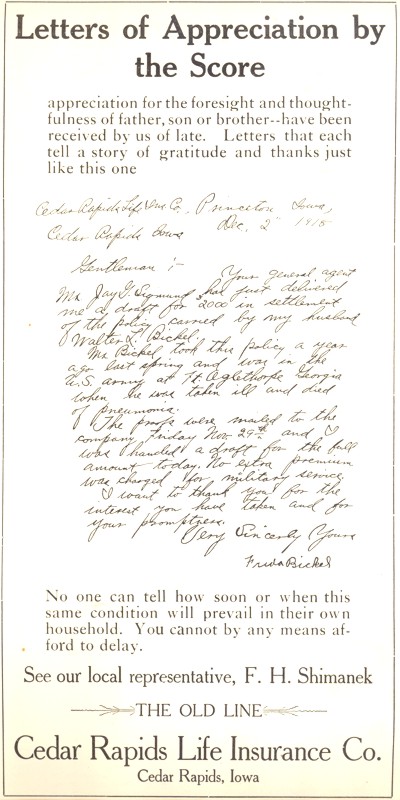 Letters of Appreciation by
the Score
appreciation for the foresight and thought-
fulness of father, son or brother--have been
received by us of late. Letters that each
tell a story of gratitude and thanks just
like this one
Cedar Rapids Life Ins. Co., Princeton Iowa,
Cedar Rapids Iowa Dec. 2 1918
Gentleman :- Your general agent
Mr. Jay G. Sigmund has just delivered
me a draft for $2000 in settlement
of the policy carried by my husband
Walter L. Bickel.
Mr. Bickel took this policy a year
ago last spring and was in the
U.S. army at Ft. Oglethorpe Georgia
when he was taken ill and died
of pneumonia.
The proofs were mailed to the
company Friday Nov. 29th and I
was handed a draft for the full
amount today. No extra premium
was charged for military service.
I want to thank you for the
interest you have taken and for
your promptness.
Very Sincerely Yours
Frieda Bickel
No one can tell how soon or when this
same condition will prevail in their own
household. You cannot by any means af-
ford to delay.
See our local representative, F. H. Shimanek
THE OLD LINE
Cedar Rapids Life Insurance Co.
Cedar Rapids, Iowa